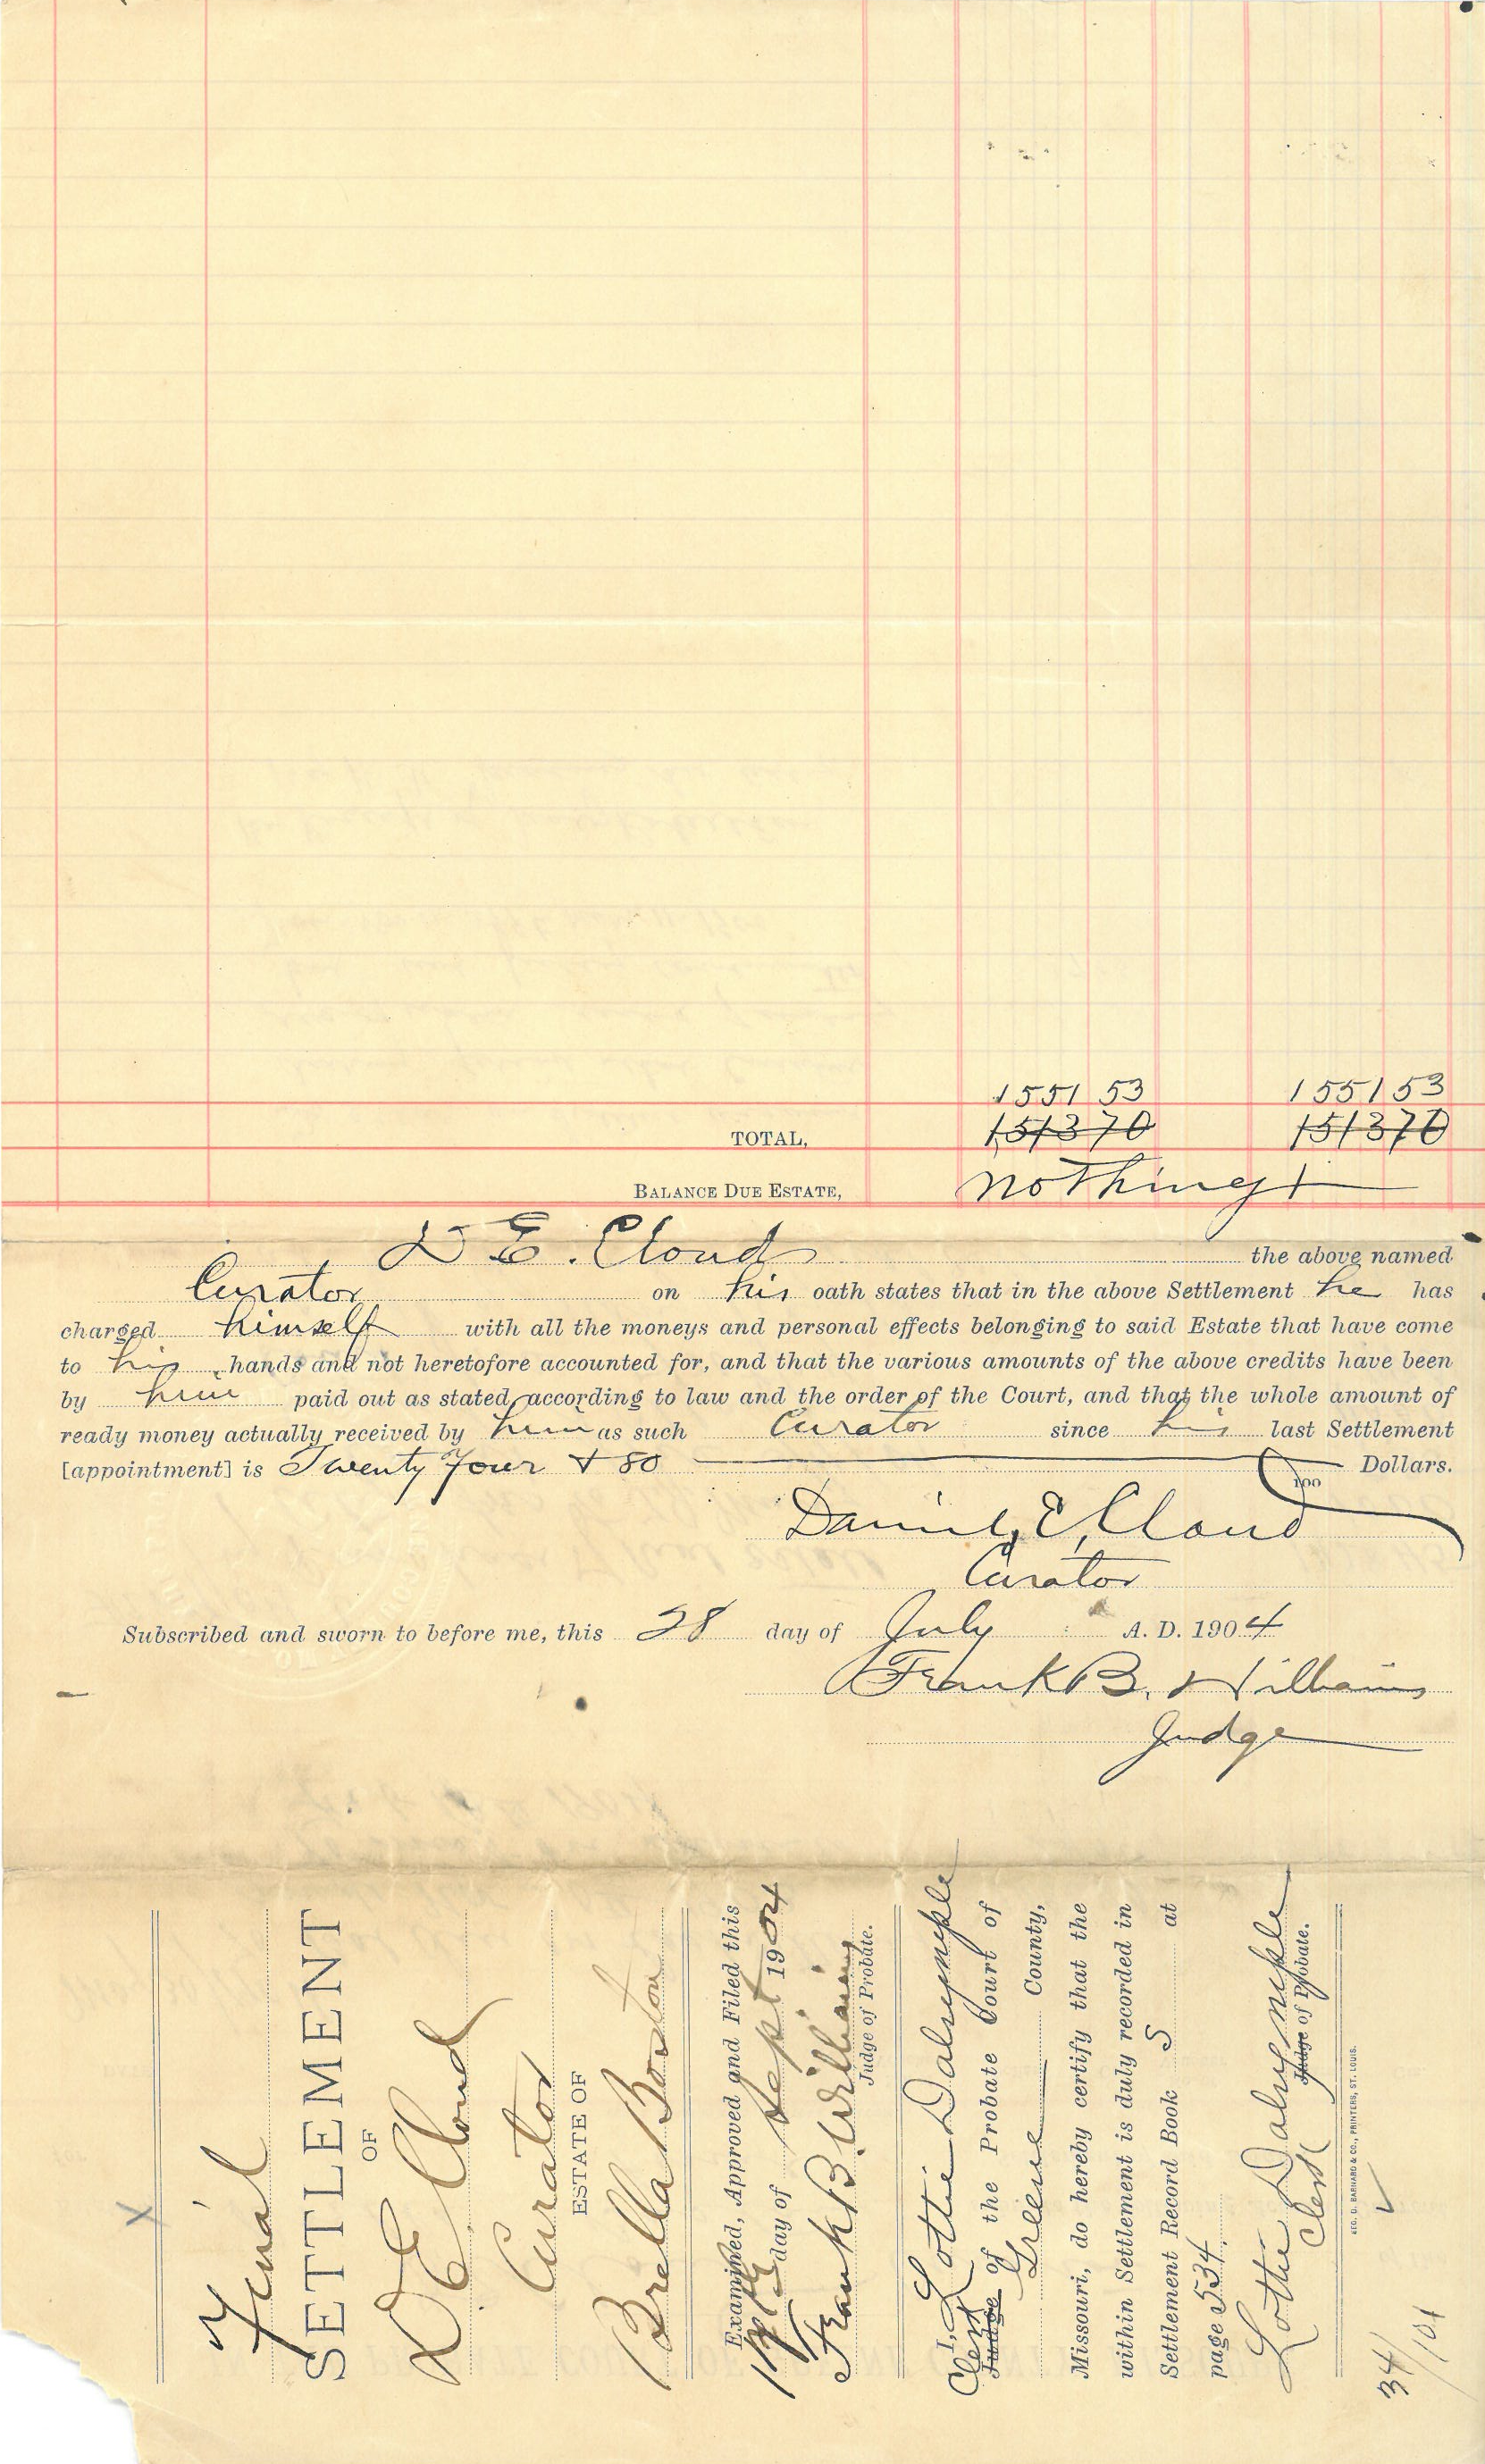 1551 53 1551 53
TOTAL, 1513 70 1513 70
BALANCE DUE ESTATE, nothing
D E. Cloud the above named
Curator on his oath states that in the above Settlement he has
charged himself with all the moneys and personal effects belonging to said Estate that have come
to his hands and not heretofore accounted for, and that the various amounts of the above credits have been
by him paid out as stated, according to law and the order of the Court, and that the whole amount of
ready money actually received by him as such Curator since his last Settlement
[appointment] is Twenty Four + 80 100 Dollars.
Daniel, E, Cloud
Curator
Subscribed and sworn to before me, this 28 day of July A. D. 1904
Frank B. Williams
Judge
X
Final
SETTLEMENT
OF
D E Cloud
Curator
ESTATE OF
Brella Boston
Examined, Approved and Filed this
day of Sept 1904
Frank B. Williams
Judge of Probate.
I, Lottie Dalrymple
Clerk Judge of the Probate Court of
Greene County,
Missouri, do hereby certify that the
within Settlement is duly recorded in
Settlement Record Book S at
page 534.
Lottie Dalrymple
Clerk Judge of Probate.
GEO. D. BARNARD & CO., PRINTERS, ST. LOUIS.
34/101